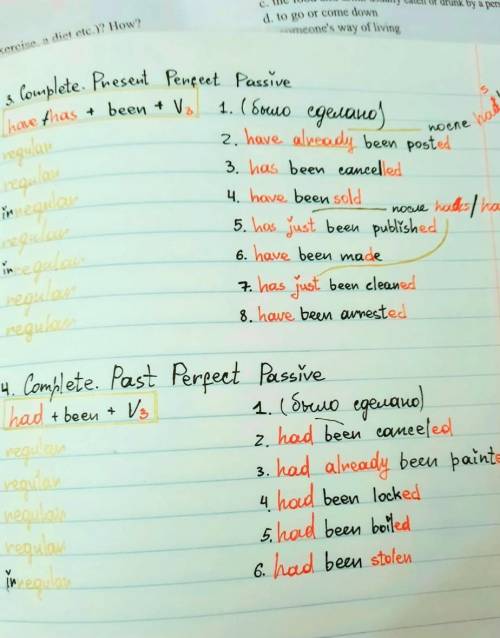 c. the food and drink usually eaten or drunk by a per
d. to go or come down
someone's way of living
exercise, a diet etc.)? How?
3. Complete. Present Perfect Passive
have/has + been + V3
1. (было сделано)
после had
regular
2. have already been posted
regular
3. has been cancelled
irregular
4. have been sold
после has/ha
regular
5. has just been published
irregular
6. have been made
regular
7. has just been cleaned
regular
8. have been arrested
4. Complete. Past Perfect Passive
had + been + V3
1. (было сделано)
regular
2. had been canceled
regular
3. had already been painte
regular
4. had been locked
regular
5. had been boiled
irregular
6. had been stolen